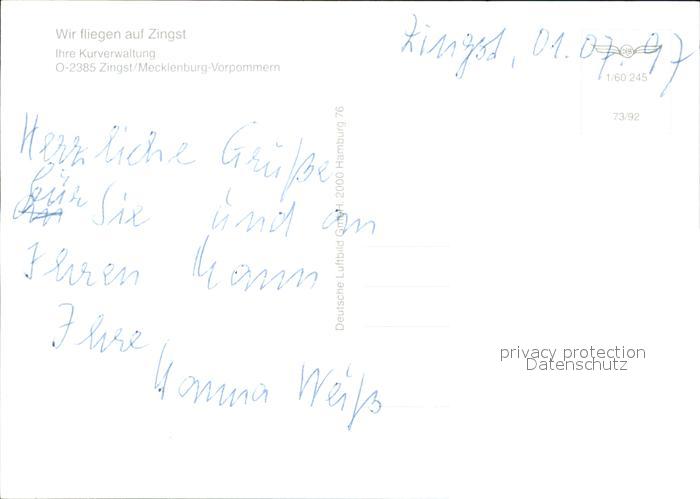 Wir fliegen auf Zingst
Ihre Kurverwaltung
O-2385 Zingst/Mecklenburg-Vorpommern
Zingst, 01.07.97
1/60 245
73/92
Herzliche Grüße
für
An Sie und an
Ihren Mann
Ihre
Hanna Weiß
Deutsche Luftbild GmbH, 2000 Hamburg 76
privacy protection
Datenschutz